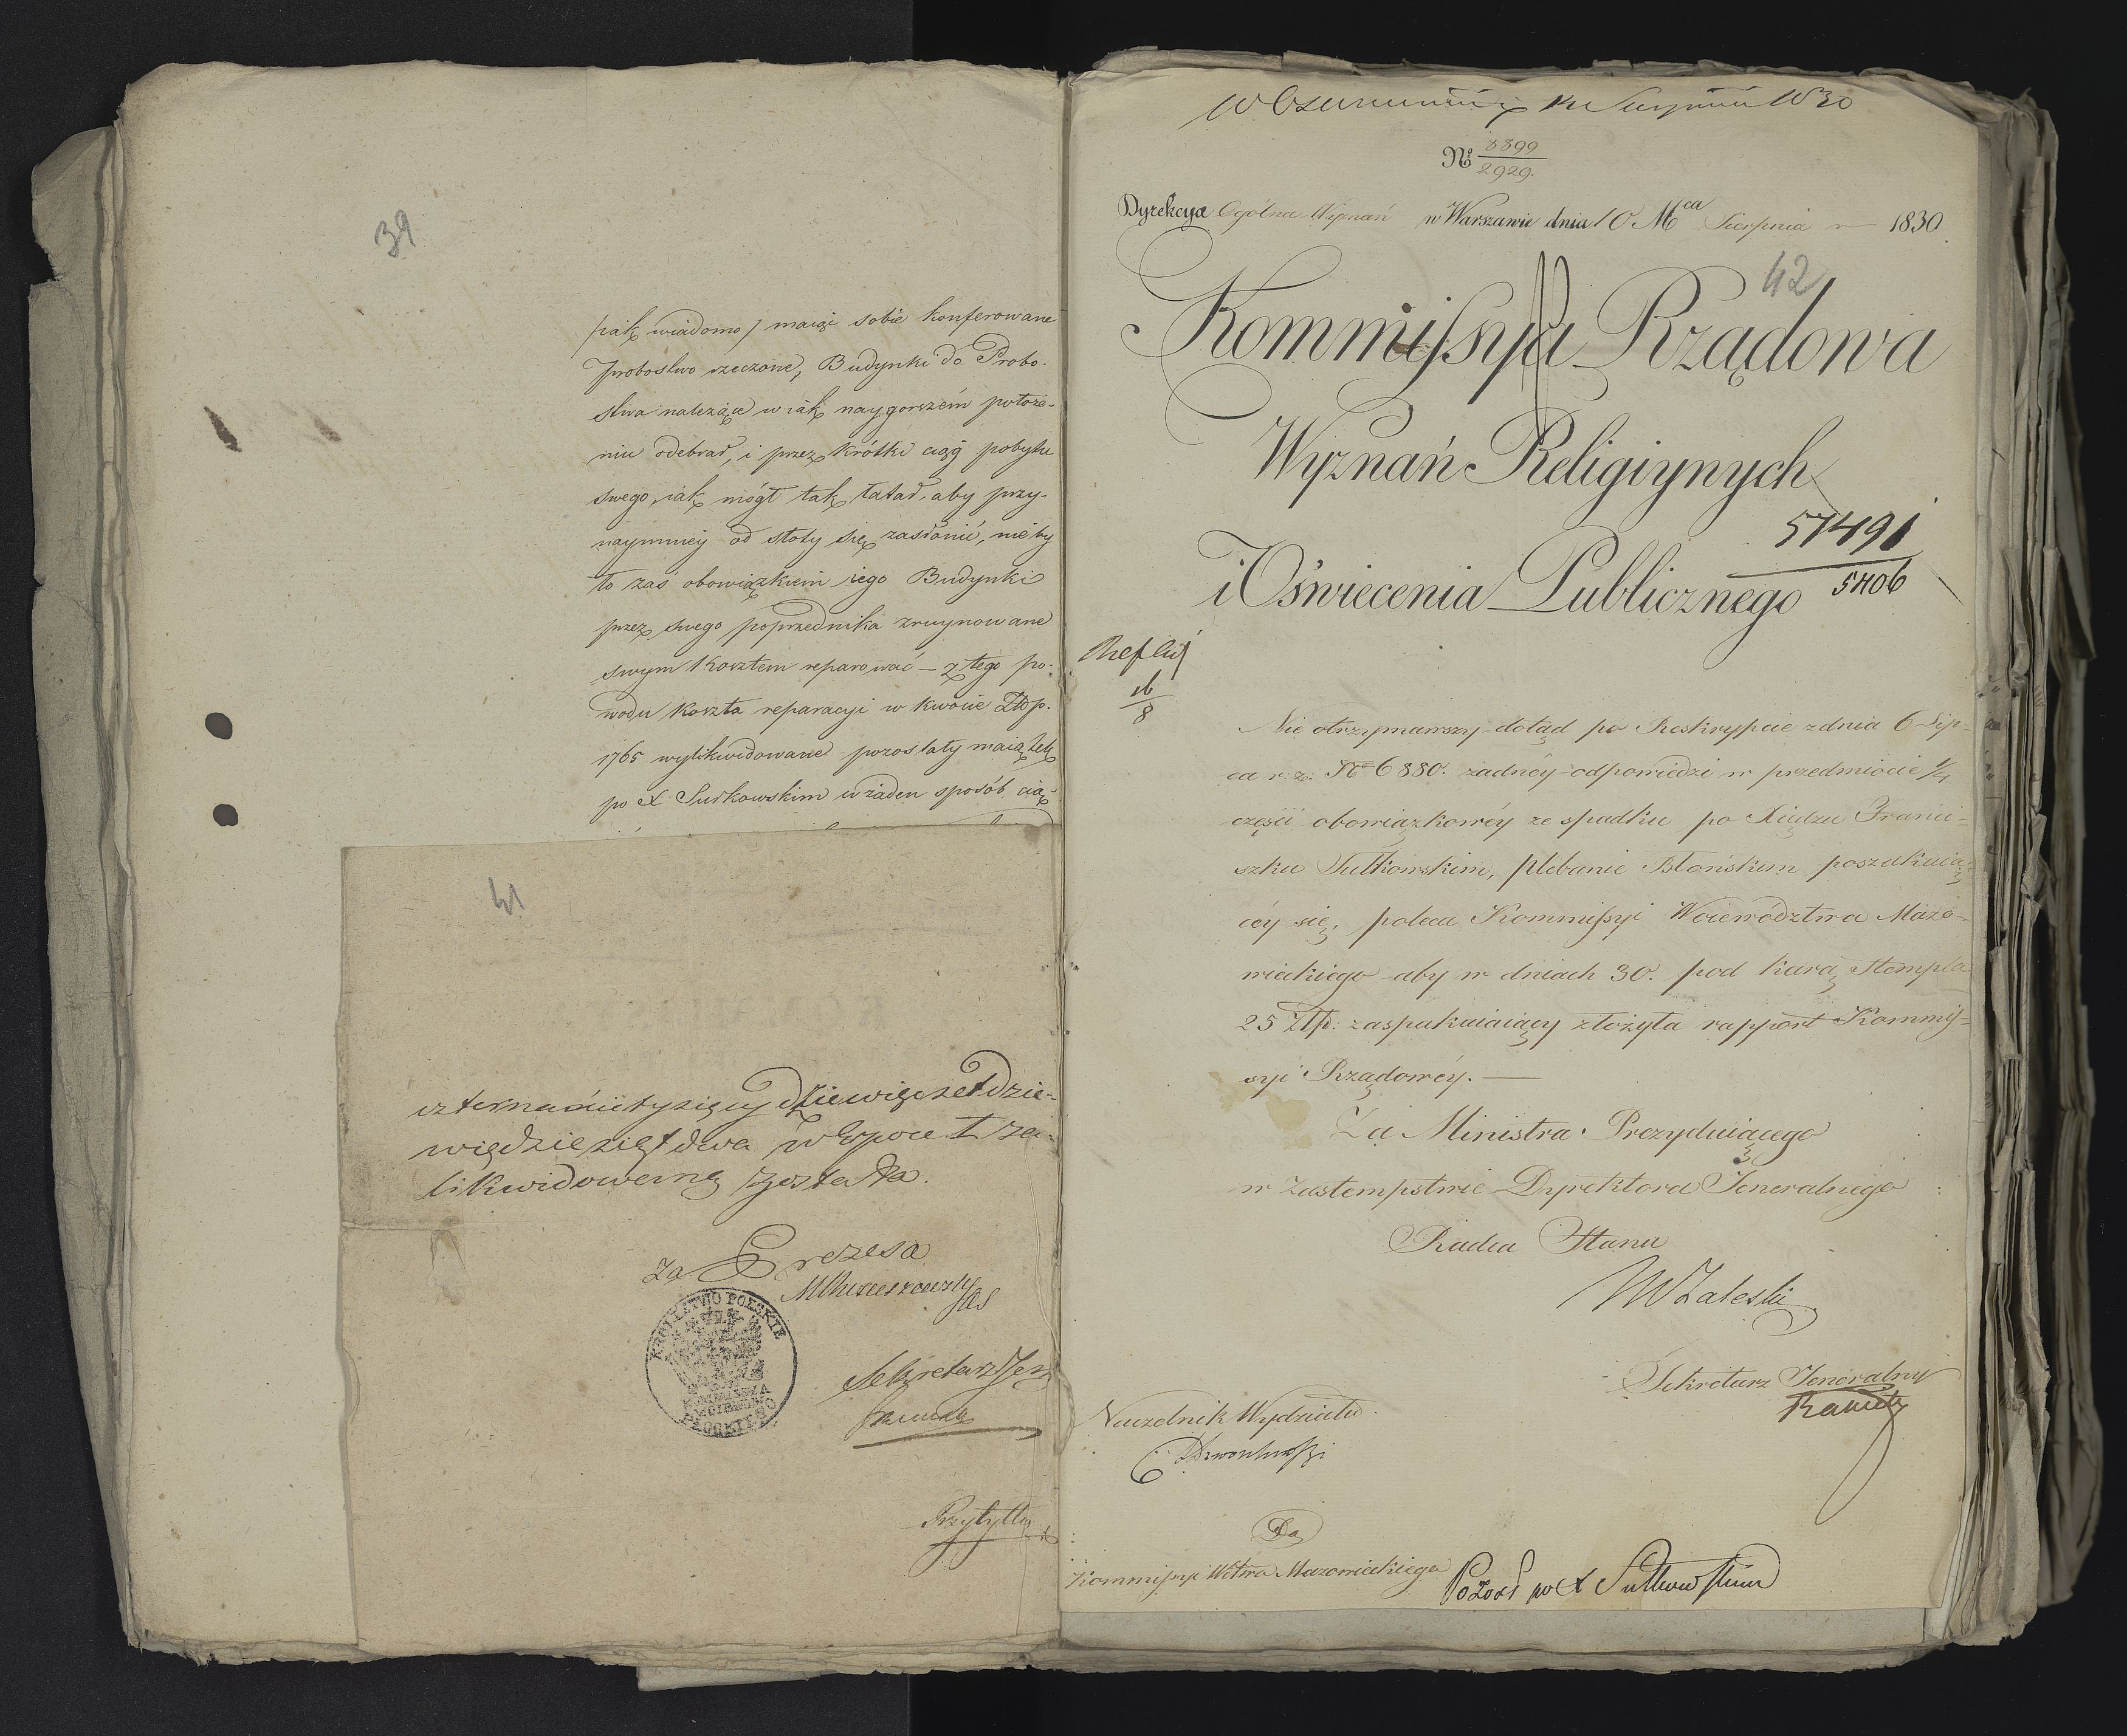 39
jak wiadomo / maiąc sobie konferowane
Probostwo rzeczone, Budynki do Probo-
stwa należące w iak naygorszém położe-
niu odebrał, i przez krótki ciąg pobytu
swego, iak mógł tak łatał, aby przy-
naymniey od słoty się zasłonić, nie by
to zaś obowiązkiem iego Budynki
przez swego poprzednika zruynowane
swym kosztem reparować – z tego po-
wodu koszta reparacyi w kwocie Złp.
1765 wylikwidowane pozostały maiątek
po X Sułkowskim w żaden sposób cią-
41
czternaście tysięcy dziewięćset dzie-
więdziesiąt dwa w Epoce I za-
likwidowaną została.
za Prezesa
Sekretarz Jen
KRÓLESTWO POLSKIE
PŁOCKIEGO
Sierpnia 1830
№ 8899
2929.
Dyrekcya Ogólna Wyznań w Warszawie dnia 10 Mca Sierpnia r 1830
42
Kommissya Rządowa
Wyznań Religiynych
i Oświecenia Publicznego
57491
5406
16
8
Nie otrzymawszy dotąd po Reskrypcie z dnia 6 Lip-
ca r. z. № 6880. żadnéy odpowiedzi w przedmiocie 1/4
części obowiązkowéy ze spadku po Xiędzu Franci-
szku Sułkowskim, plebanie Błońskim poszukuią-
céy się, poleca Kommissyi Woiewództwa Mazo-
wieckiego aby w dniach 30. pod karą Stempla
25 Złp. zaspakaiaiący złożyła rapport Kommis-
syi Rządowéy. —
Za Ministra Prezyduiącego
w zastempstwie Dyrektora Jeneralnego
Radca Stanu
M Zaleski
Sekretarz Jeneralny
Naczelnik Wydziału
Do
Kommissyi Wdtwa Mazowieckiego
po X Sułkowskim